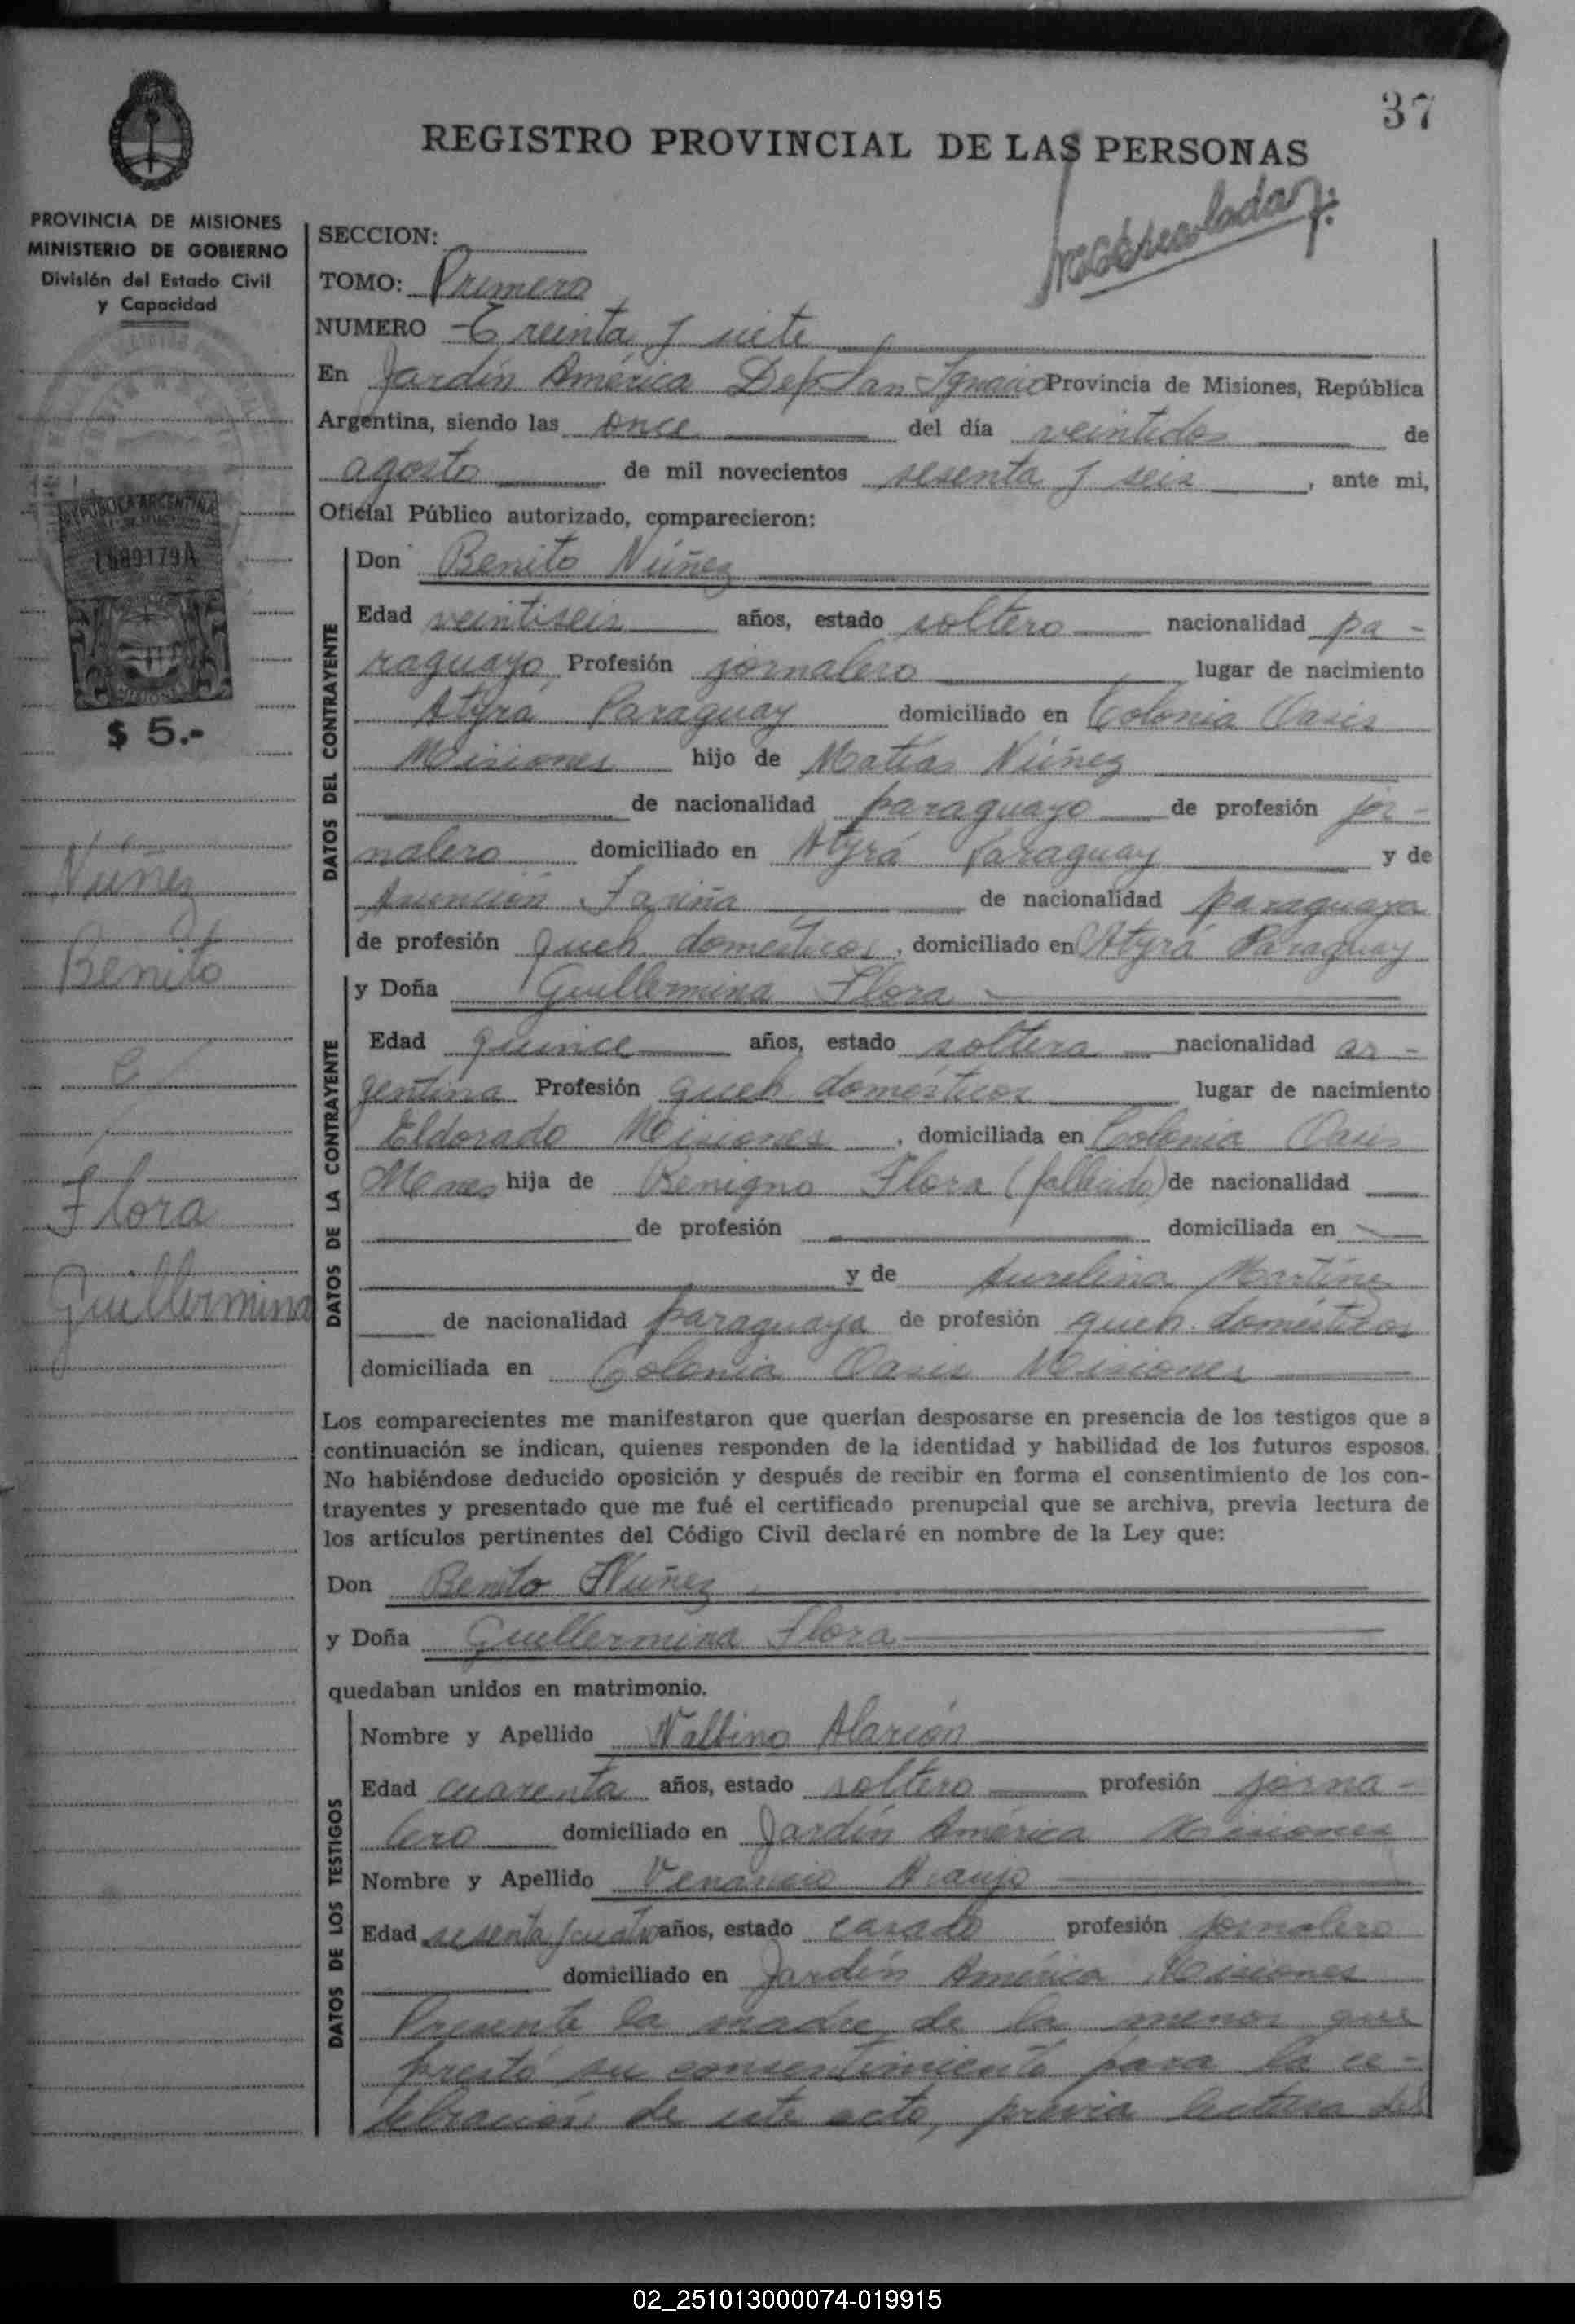 37
REGISTRO PROVINCIAL DE LAS PERSONAS
PROVINCIA DE MISIONES
MINISTERIO DE GOBIERNO
División del Estado Civil
y Capacidad
REPUBLICA ARGENTINA
1589179A
MISIONES
$ 5.-
Nuñez
Benito
e/
Flora
Guillermina
SECCION:
TOMO: Primero
NUMERO Treinta y siete
En Jardín América Dep San Ignacio Provincia de Misiones, República
Argentina, siendo las once del día veintidos de
agosto de mil novecientos sesenta y seis, ante mi,
Oficial Público autorizado, comparecieron:
DATOS DEL CONTRAYENTE
Don Benito Núñez
Edad veintiseis años, estado soltero nacionalidad pa-
raguayo Profesión jornalero lugar de nacimiento
Atyrá Paraguay domiciliado en Colonia Oasis
Misiones hijo de Matías Núñez
de nacionalidad paraguayo de profesión jor-
nalero domiciliado en Atyrá Paraguay y de
Asención Fariña de nacionalidad paraguaya
de profesión queh. domésticos, domiciliado en Atyrá Paraguay
DATOS DE LA CONTRAYENTE
y Doña Guillermina Flora
Edad quince años, estado soltera nacionalidad ar-
gentina Profesión queh domésticos lugar de nacimiento
Eldorado Misiones, domiciliada en Colonia Oasis
Mnes hija de Benigno Flora (fallecido) de nacionalidad
de profesión domiciliada en
y de Aurelina Martinez
de nacionalidad paraguaya de profesión queh. domésticos
domiciliada en Colonia Oasis Misiones
Los comparecientes me manifestaron que querían desposarse en presencia de los testigos que a
continuación se indican, quienes responden de la identidad y habilidad de los futuros esposos.
No habiéndose deducido oposición y después de recibir en forma el consentimiento de los con-
trayentes y presentado que me fué el certificado prenupcial que se archiva, previa lectura de
los artículos pertinentes del Código Civil declaré en nombre de la Ley que:
Don Benito Núñez
y Doña Guillermina Flora
quedaban unidos en matrimonio.
DATOS DE LOS TESTIGOS
Nombre y Apellido Valbino Alarcón
Edad cuarenta años, estado soltero profesión jorna-
lero domiciliado en Jardín América Misiones
Nombre y Apellido Venancio Araujo
Edad sesenta y cuatro años, estado casado profesión jornalero
domiciliado en Jardín América Misiones
Presente la madre de la menor que
prestó su consentimiento para la ce-
lebración de este acto, previa lectura del
02_251013000074-019915